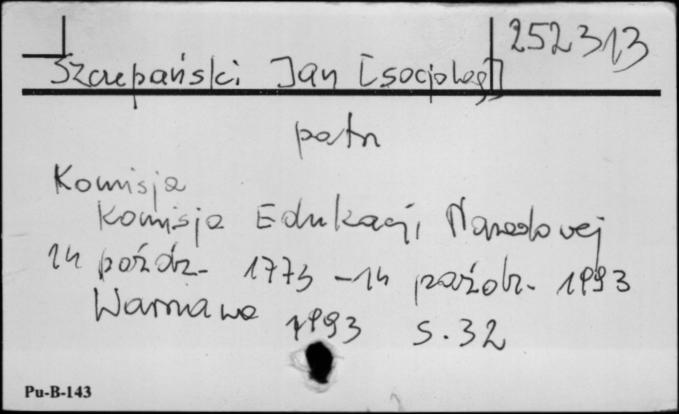 252313
Szczepański Jan [socjolog]
patrz
Komisja
Komisja Edukacji Narodowej
14 paźdz. 1773 - 14 paźdz. 1993
Warszawa 1993 s. 32
Pu-B-143